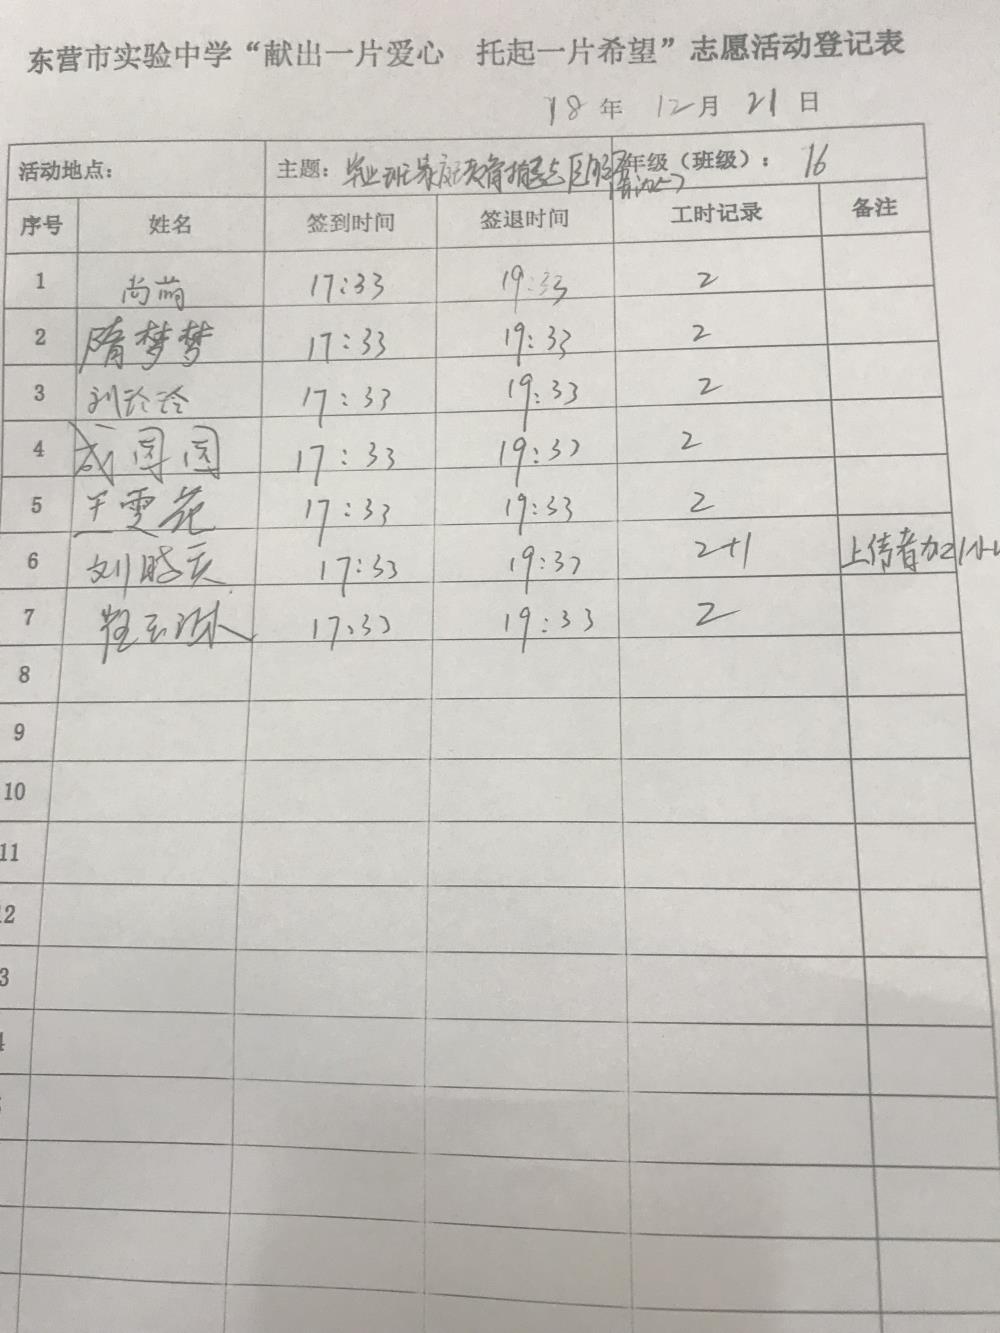 东营市实验中学“献出一片爱心 托起一片希望”志愿活动登记表
18年 12月 21日
活动地点： 主题：毕业班家庭教育指导与 年级（班级）：16
序号 姓名 签到时间 签退时间 工时记录 备注
1 尚萌 17:33 19:33 2
2 隋梦梦 17:33 19:33 2
3 刘玲玲 17:33 19:33 2
4 成国国 17:33 19:33 2
5 王雪花 17:33 19:33 2
6 刘晓天 17:33 19:33 2+1 上传者加1小
7 程玉琳 17:33 19:33 2
8
9
10
11